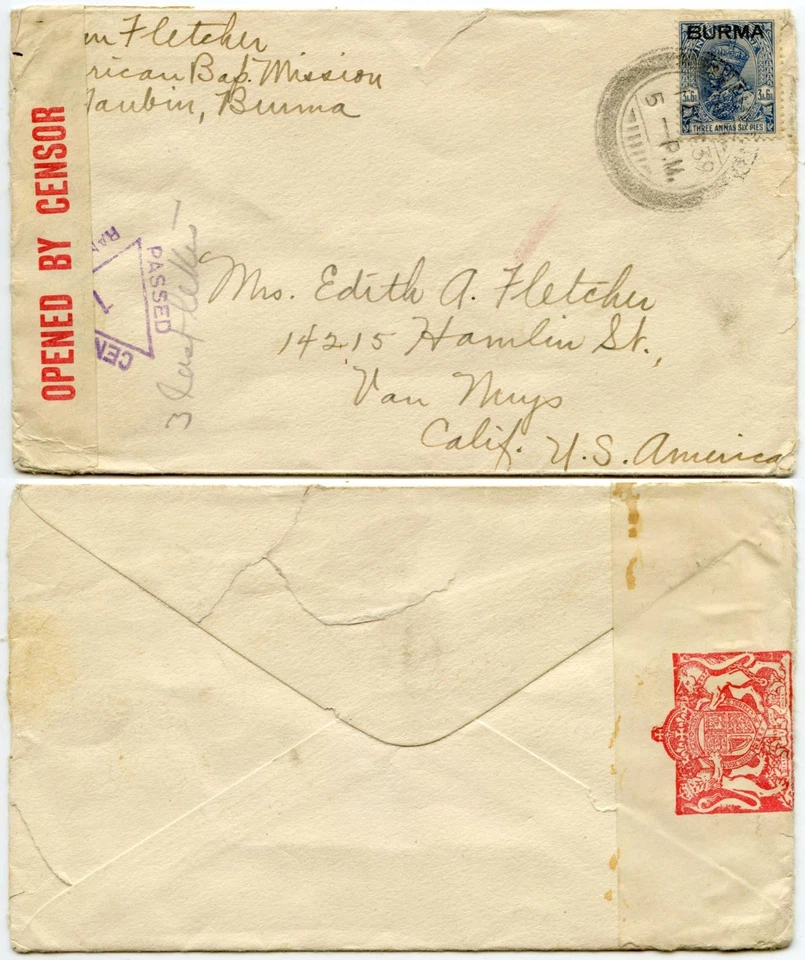 Fletcher
rican Bap. Mission
Maubin, Burma
BURMA
3a.6p. 3a.6p.
THREE ANNAS SIX PIES
39
5 - P.M.
OPENED BY CENSOR
PASSED
CEN
RAN
3
Mrs. Edith A. Fletcher
14215 Hamlin St.,
Van Nuys
Calif. U.S. America